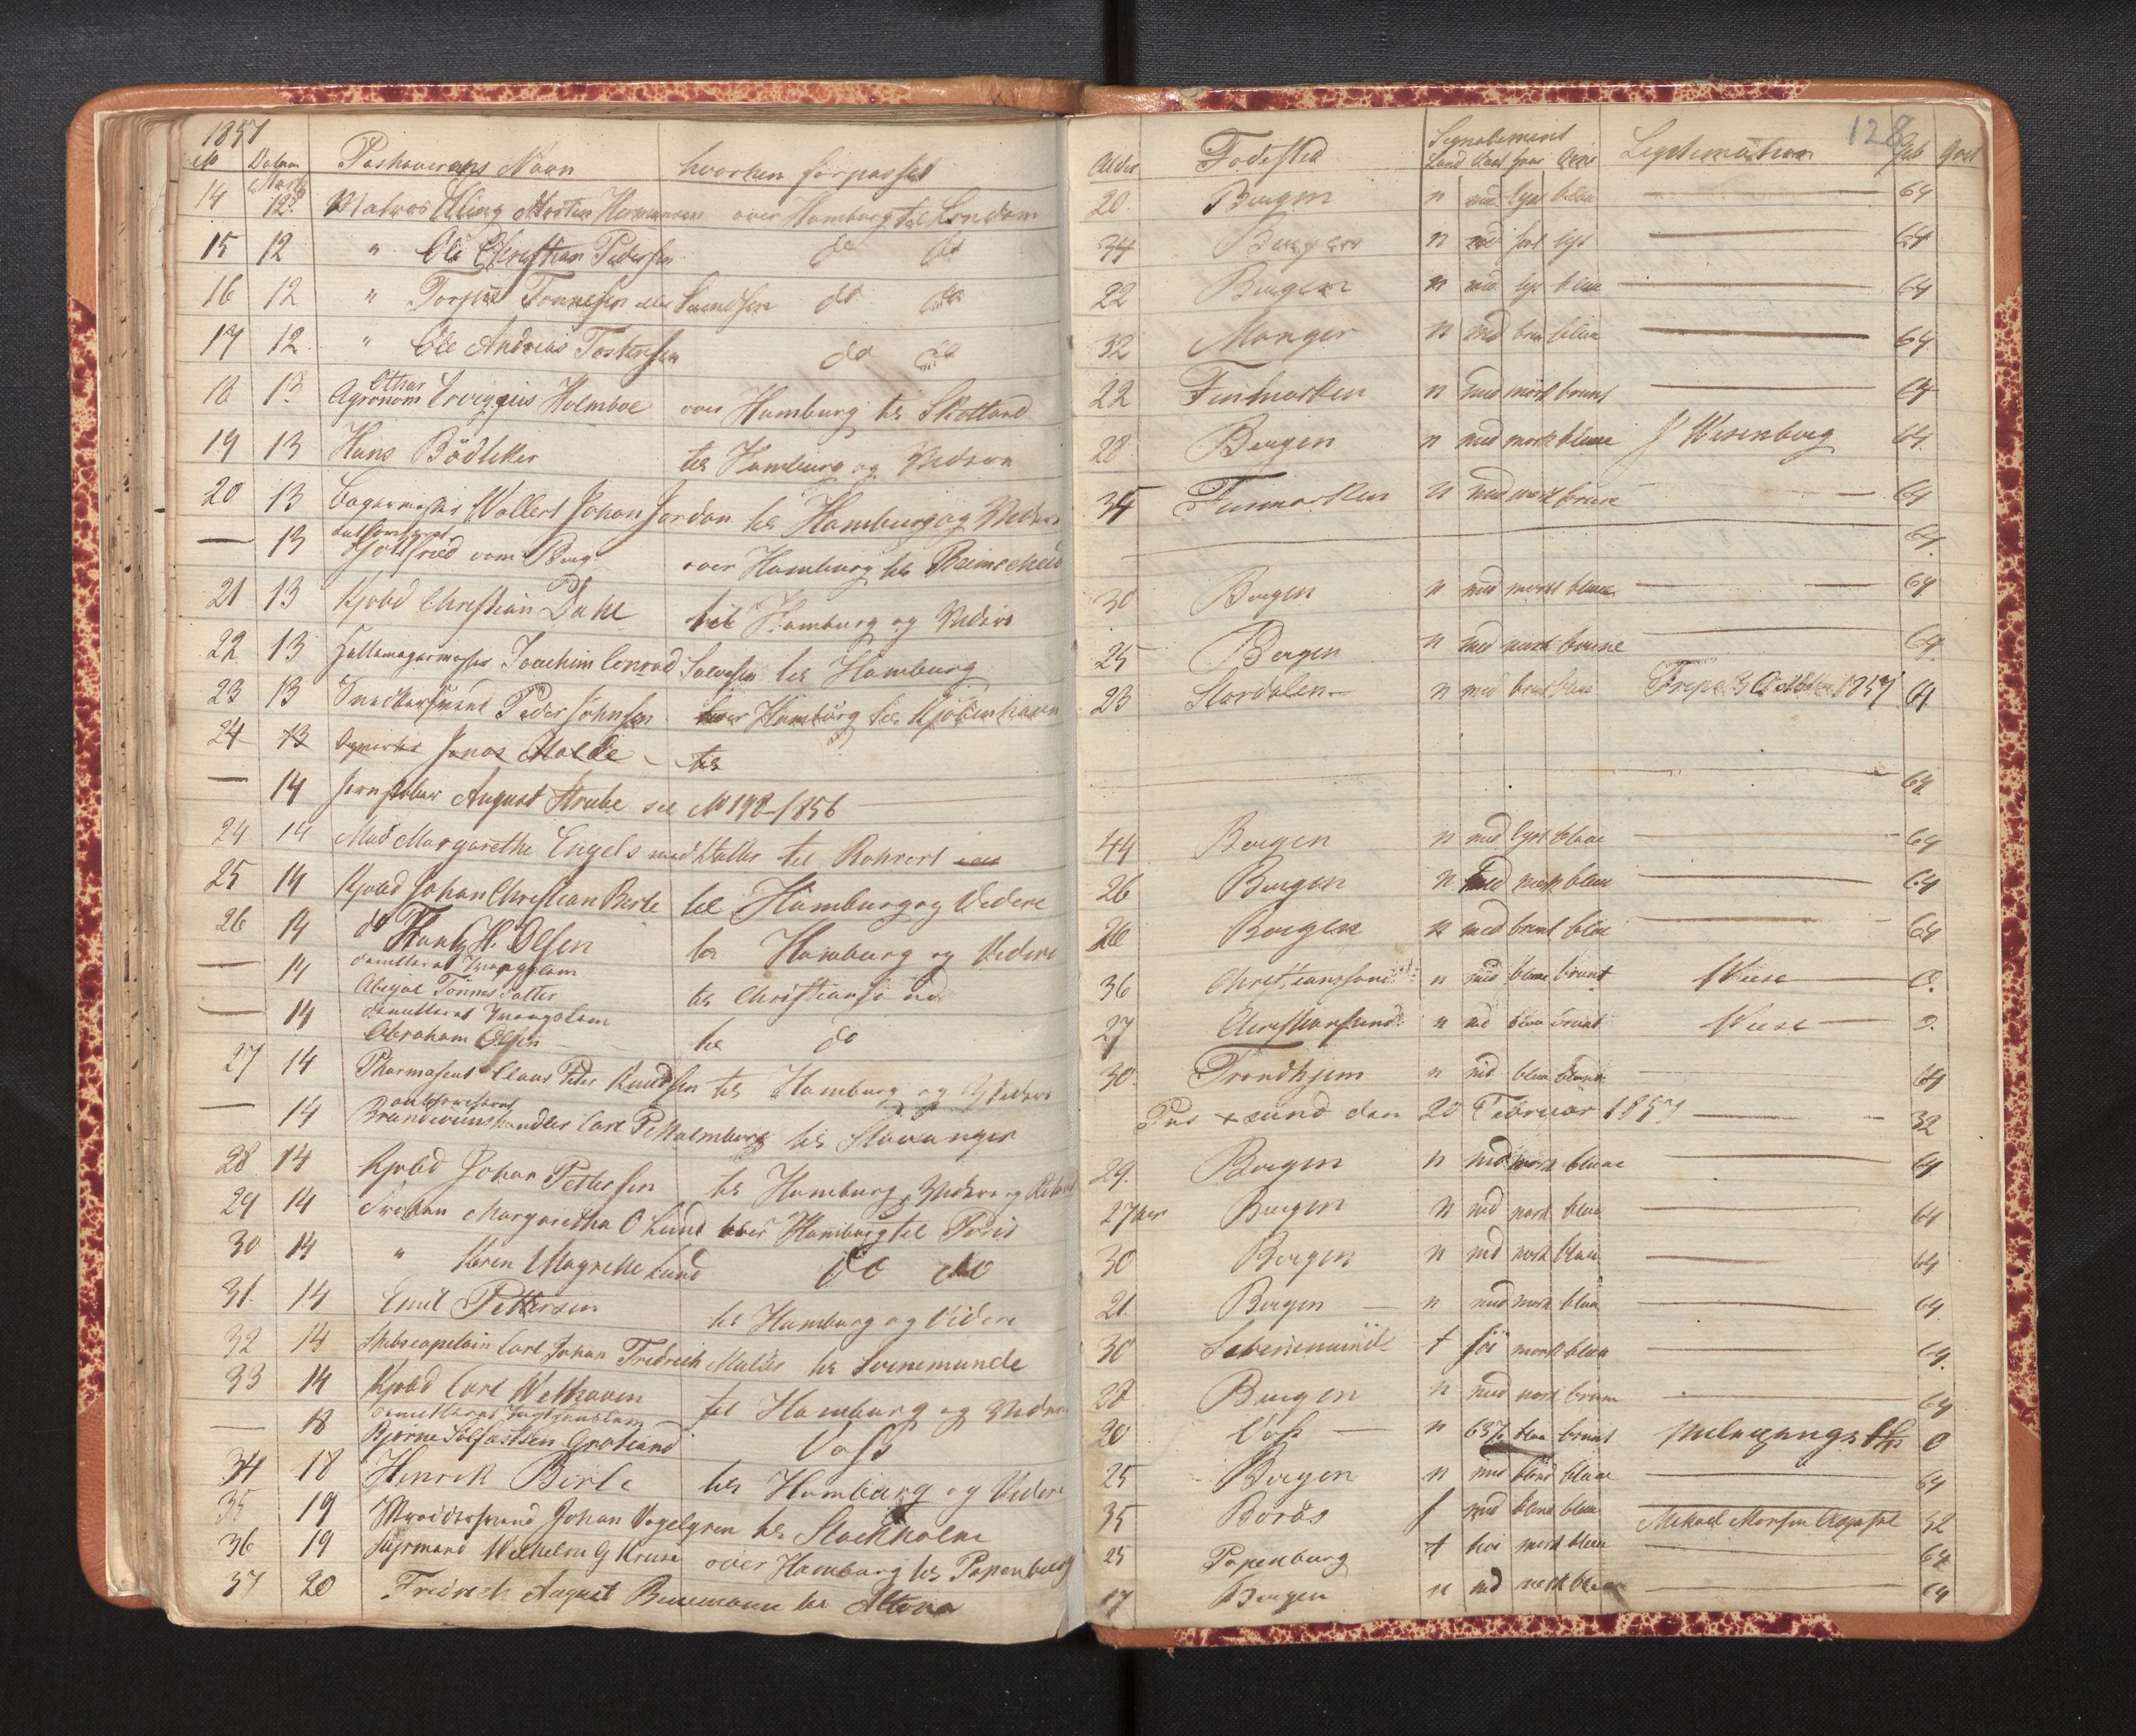 1857
No Datum Pashaverens Navn hvorhen forpasset
Marts
14 12 Matros Elling Morten Hermansen over Hamburg til London
15 12 " Ole Christian Pedersen do do
16 12 " Tønnesen eller Svendsen do do
17 12 " Ole Andreas Tostensen do do
Othar
18 13 Agronom Holmboe over Hamburg til Skotland
19 13 Hans Bödtker til Hamburg og Videre
20 13 Wollert Johan Jordan til Hamburg og Videre
— 13 Gottfried vom Berg over Hamburg til Remscheid
21 13 Kjøbd Christian Dahl til Hamburg og Videre
22 13 Joachim Conrad til Hamburg
23 13 Snedkersvend Peder Johnsen over Hamburg til Kjöbenhavn
24 13 Jonas Molde til
— 14 August Strube see No 198-1856
24 14 Mad Margarethe Engels med til Rohrort
25 14 Kjøbd Johan Christian Berle til Hamburg og Videre
26 14 do Frantz H. Olsen til Hamburg og Videre
dimitteret Tvangslem
— 14 Abigael Tønnesdatter til Christiansund
dimitteret Tvangslem
— 14 Abraham Olsen til do
27 14 Pharmaseut Claus Peter Knudsen til Hamburg og Videre
— 14 Brændeviinshandler Carl P Malmberg til Stavanger
28 14 Kjøbd Johan Pettersen til Hamburg, Videre og
29 14 Frøken Margaretha O Lund over Hamburg til Paris
30 14 " Karen Magrethe Lund do do
31 14 Emil Pettersen til Hamburg og Videre
32 14 Skibscapitain Carl Johan Fredrich til Svinemunde
33 14 Kjøbd Carl Welhaven til Hamburg og Videre
— 18 Bjørne Voss
34 18 Henrik Berle til Hamburg og Videre
35 19 Johan Vogelgren til Stockholm
36 19 Styrmand Wilhelm G Kruse over Hamburg til Papenburg
37 20 Fredrich August til Altona
128
Alder Fodested Signalement Legitimation
20 Bergen n mid lyst blaa 64
34 Bergen n mid 64
22 Bergen n mid lyst blaa 64
32 Manger n mid brun blaa 64
22 Finmarken n mid mörk bruunt 64
28 Bergen n mid mörk blaae J Wesenberg 64
34 Finmarken n mid mörk brune 64
64
30 Bergen n mid mörkt blaae 64
25 Bergen n mid mörk brune 64
23 Stordalen n mid 3 1857 64
64
44 Bergen n mid lyst blaae 64
26 Bergen n mid mörk blaa 64
26 Bergen n mid bruunt blaa 64
36 Christianssund n mid blaae bruunt Wiese 0
27 Christiansund n mid blaa bruunt Wiese 0
30 Trondhjem n mid 64
Pas Xsund den 20 Februar 1857 32
29 Bergen n mid mörk blaae 64
27 Bergen n mid mörk blaa 64
30 Bergen n mid mörk blaa 64
21 Bergen n mid mörk blaa 64
30 t höi mörk blaa 64
28 Bergen n mid mörk 64
20 Voss n 63 blaa bruunt 0
25 Bergen n mid blond blaae 64
35 Borås mid blond blaa Mikael Monsen 32
25 Papenburg t höi mörk blaa 64
17 Bergen n mid mörk blaa 64